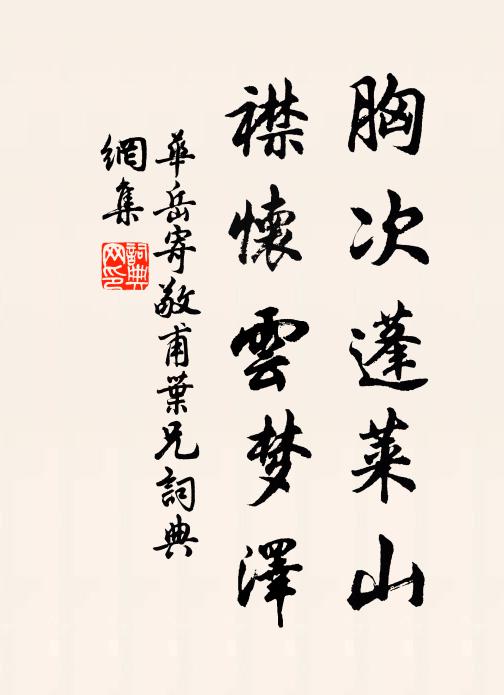 胸次蓬萊山
襟懷雲梦澤
華岳寄敬甫葉兄詞典
網集
詞典
网印